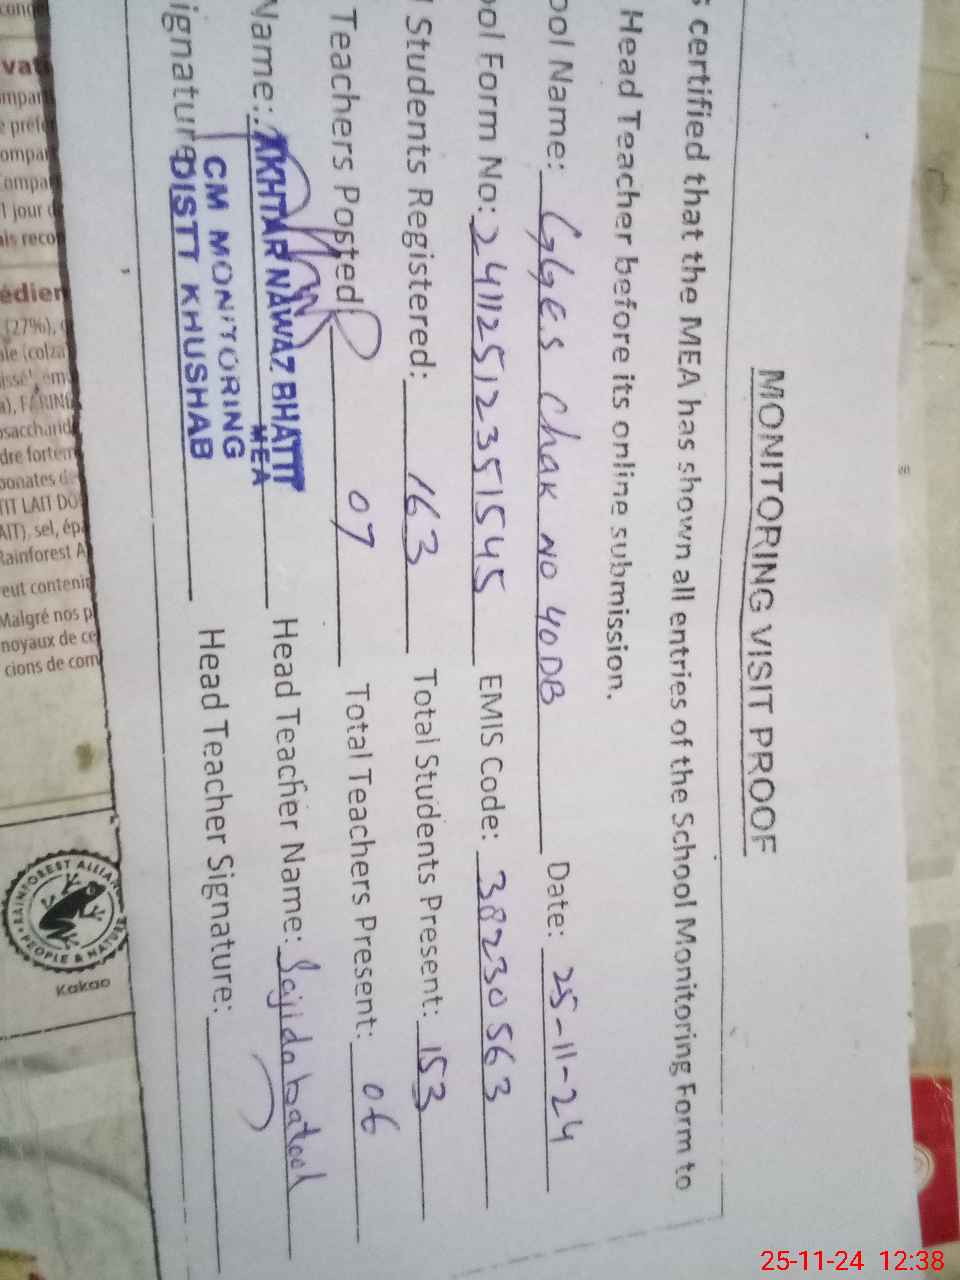 MONITORING VISIT PROOF
certified that the MEA has shown all entries of the School Monitoring Form to
Head Teacher before its online submission.
ool Name: GGES Chak NO 40DB Date: 25-11-24
ool Form No: 24112512351545 EMIS Code: 38230563
Students Registered: 163 Total Students Present: 153
Teachers Posted 07 Total Teachers Present: 06
Name: AKHTAR NAWAZ BHATTI Head Teacher Name: Sajida batool
MEA
ignature Head Teacher Signature:
CM MONITORING
DISTT KHUSHAB
édien
(27%),
TIT LAIT DO
AIT), sel, épa
Rainforest A
eut contenir
Malgré nos p
noyaux de ce
cions de com
RAINFOREST ALLIAN
PEOPLE & NATURE
Kakao
25-11-24 12:38